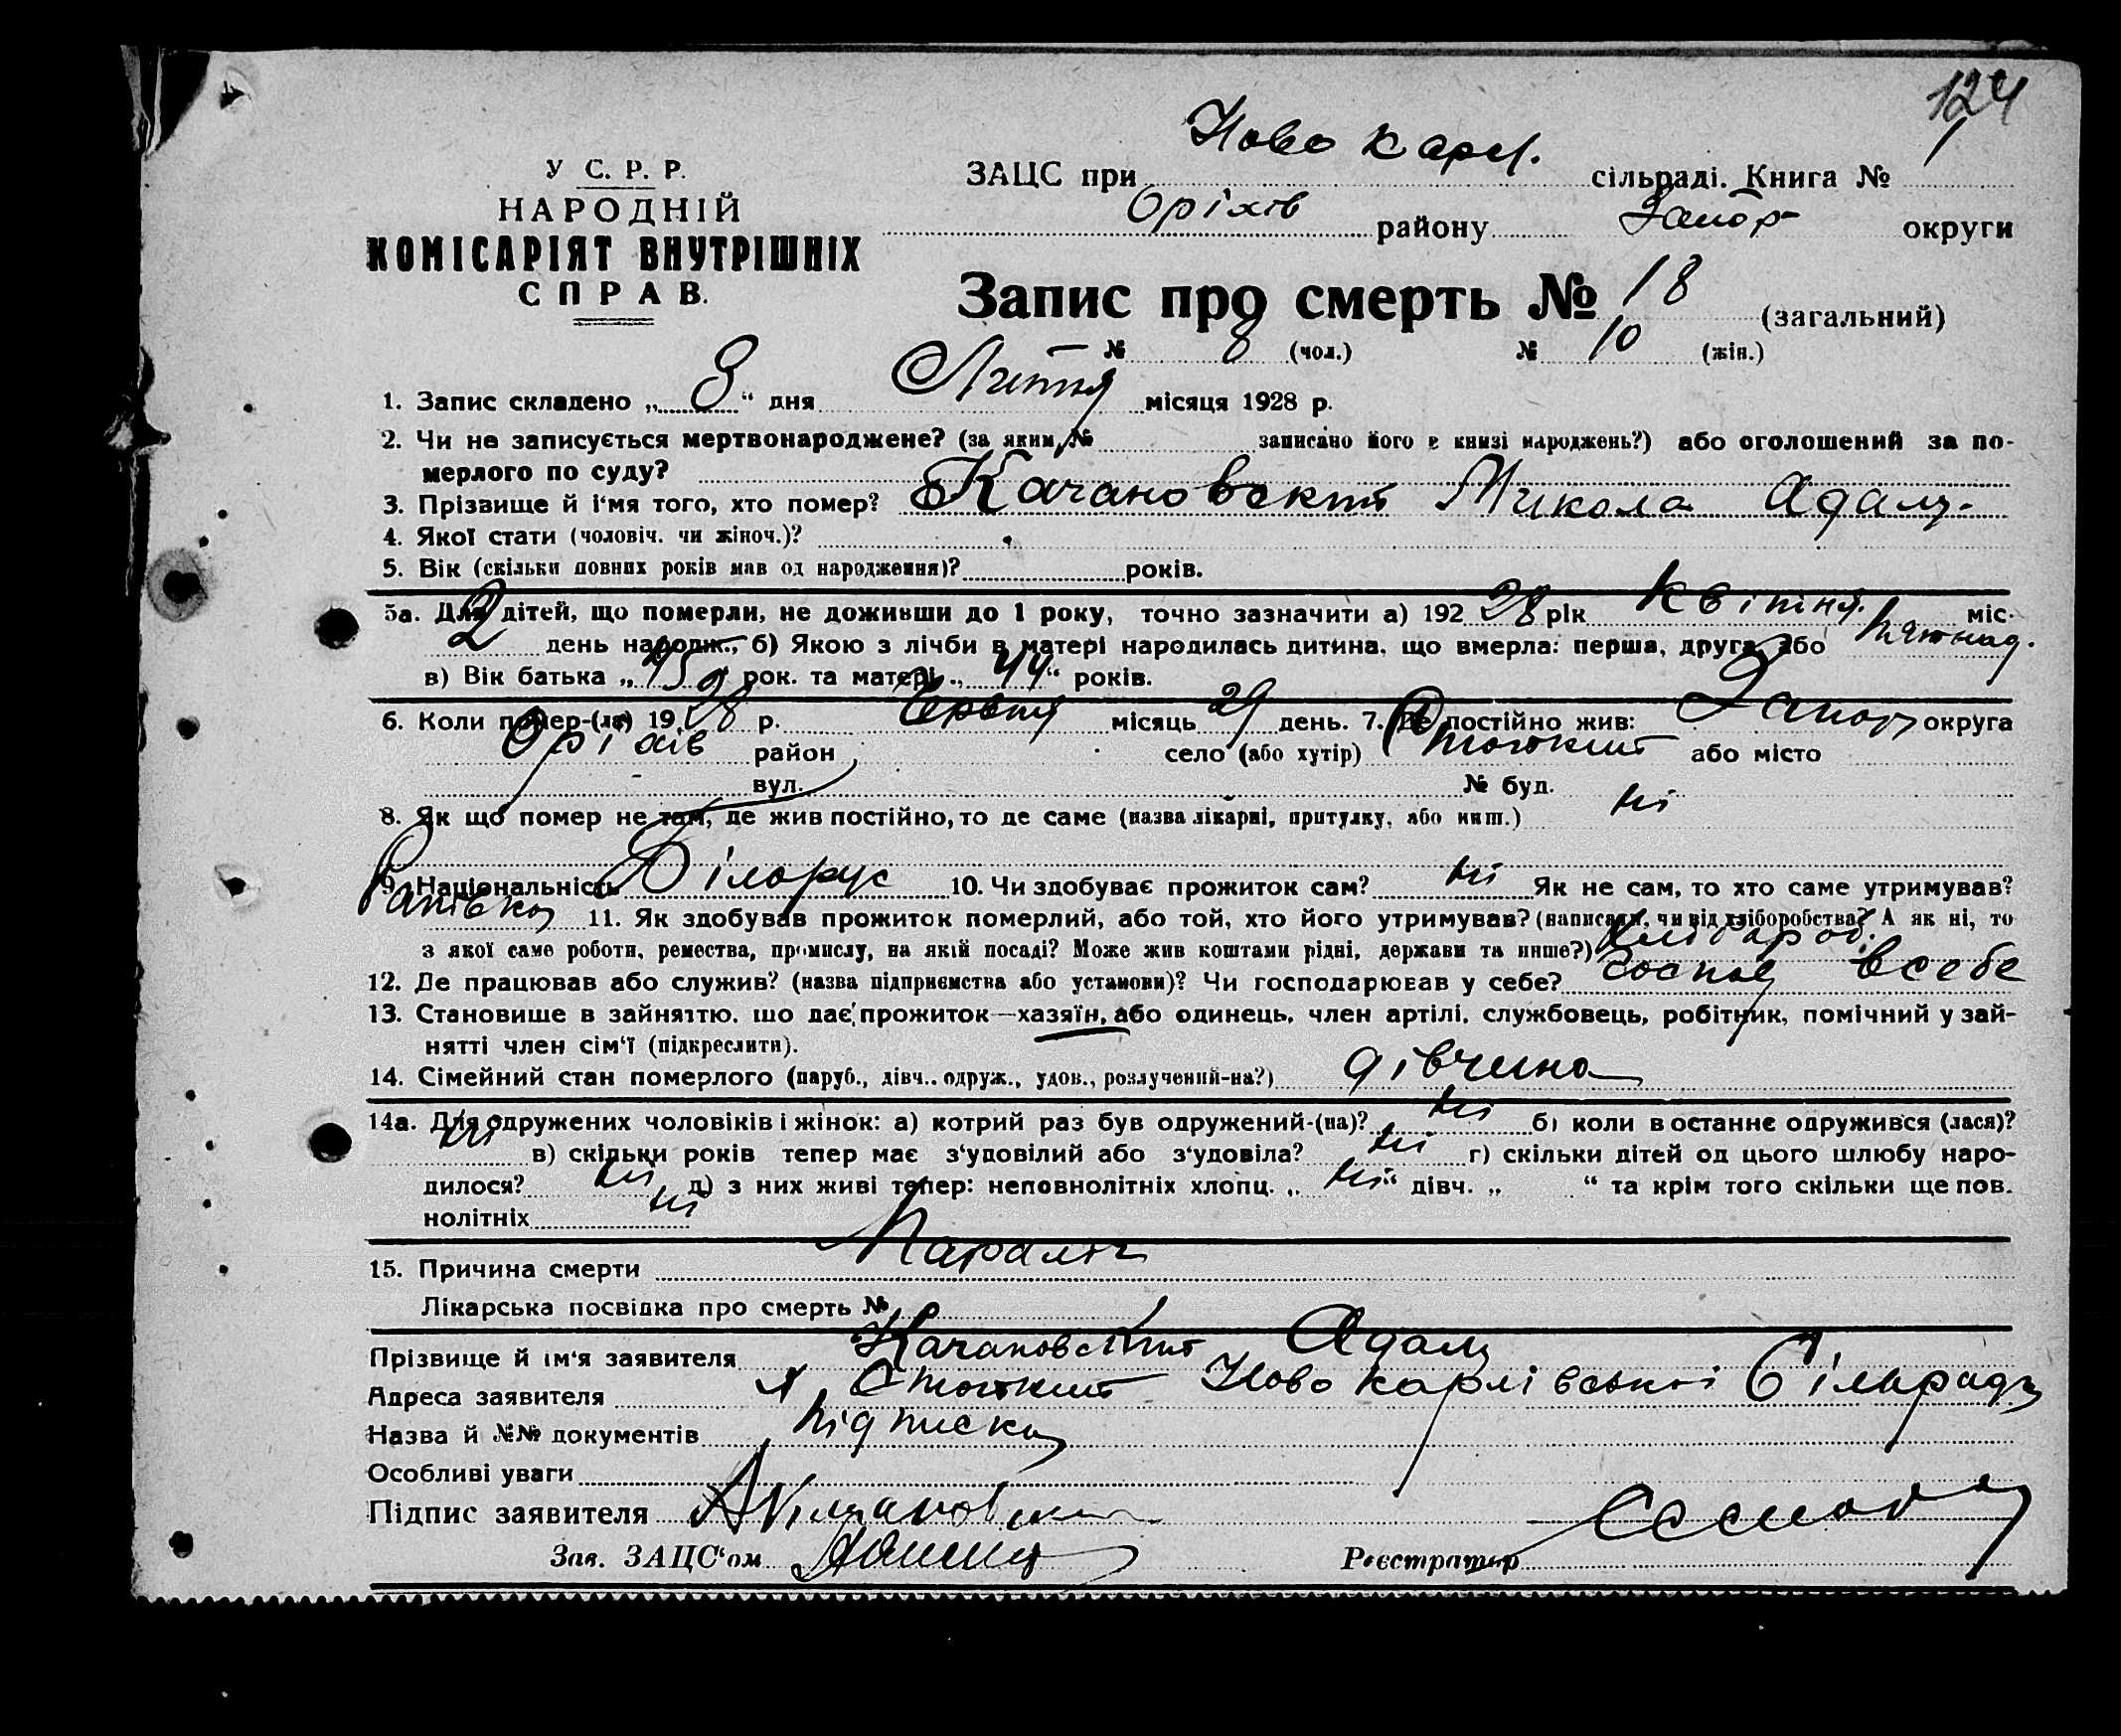 124
У С. Р. Р.
НАРОДНІЙ
КОМІСАРІЯТ ВНУТРІШНІХ
СПРАВ.
ЗАЦС при Ново карл. сільраді. Книга № 1
Оріхів району Запор округи
Запис про смерть № 18 (загальний)
№ 8 (чол.) № 10 (жін.)
1. Запис складено „ 8 “ дня Липня місяця 1928 р.
2. Чи не записується мертвонароджене? (за яким № записано його в книзі народжень?) або оголошений за по-
мерлого по суду?
3. Прізвище й і‘мя того, хто помер? Качановский Микола Адам.
4. Якої стати (чоловіч. чи жіноч.)?
5. Вік (скільки повних років мав од народження)? років.
5а. Для дітей, що померли, не доживши до 1 року, точно зазначити а) 192 28 рік Квітня міс.
2 день народж., б) Якою з лічби в матері народилась дитина, що вмерла: перша, друга, або пятнад.
в) Вік батька „ 45 “ рок. та матері „ 44 “ років.
6. Коли помер-(ла) 19 28 р. Червня місяць 29 день. 7. Де постійно жив: Запор округа
Оріхів район село (або хутір) або місто
вул. № буд.
8. Як що помер не там, де жив постійно, то де саме (назва лікарні, притулку, або инш.) ні
9. Національність Білорус 10. Чи здобуває прожиток сам? ні Як не сам, то хто саме утримував?
Батько 11. Як здобував прожиток померлий, або той, хто його утримував? (написати, чи від хліборобства? А як ні, то
з якої саме роботи, ремества, промислу, на якій посаді? Може жив коштами рідні, держави та инше?) Хлібороб.
12. Де працював або служив? (назва підприємства або установи)? Чи господарював у себе? Господ в себе
13. Становище в зайняттю, що дає прожиток—хазяїн, або одинець, член артілі, службовець, робітник, помічний у зай-
нятті член сім‘ї (підкреслити).
14. Сімейний стан померлого (паруб., дівч., одруж., удов., розлучений-на?) дівчина
14а. Для одружених чоловіків і жінок: а) котрий раз був одружений-(на)? ні б) коли в останнє одружився (лася)?
ні в) скільки років тепер має з‘удовілий або з‘удовіла? ні г) скільки дітей од цього шлюбу наро-
дилося? ні д) з них живі тепер: неповнолітніх хлопц. „ ні “ дівч. „ “ та крім того скільки ще пов.
нолітніх ні
15. Причина смерти Параліч
Лікарська посвідка про смерть №
Прізвище й ім‘я заявителя Качановский Адам
Адреса заявителя Ново карлівської Сільради
Назва й №№ документів підписка
Особливі уваги
Підпис заявителя
Зав. ЗАЦС‘ом Реєстратор